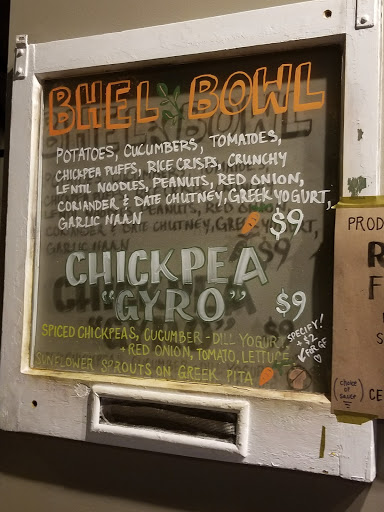 BHEL BOWL
POTATOES, CUCUMBERS, TOMATOES,
CHICKPEA PUFFS, RICE CRISPS, CRUNCHY
LENTIL NOODLES, PEANUTS, RED ONION,
CORIANDER & DATE CHUTNEY, GREEK YOGURT,
GARLIC NAAN
$9
CHICKPEA
"GYRO" $9
SPICED CHICKPEAS, CUCUMBER-DILL YOGURT
+ RED ONION, TOMATO, LETTUCE
SUNFLOWER SPROUTS ON GREEK PITA
SPECIFY!
+ $2
FOR GF
PROD
R
F
(CHOICE
OF
SAUCE)
CE